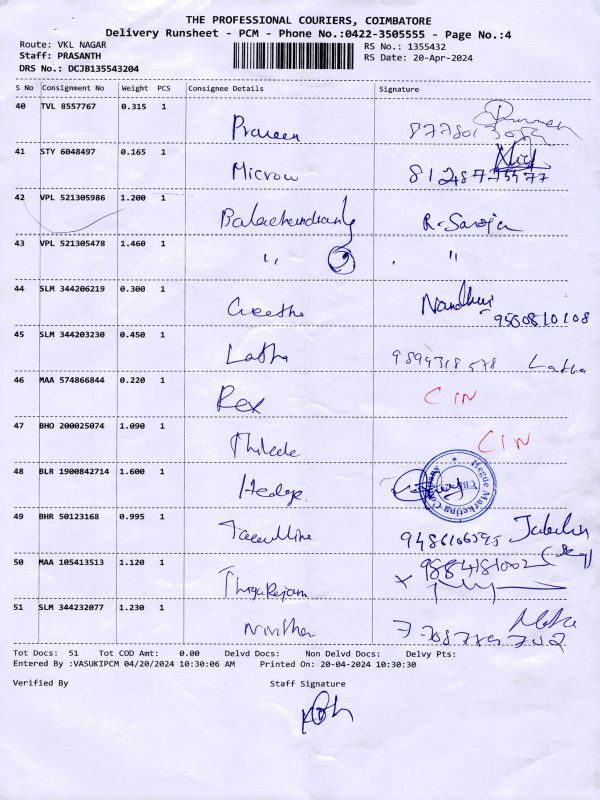 THE PROFESSIONAL COURIERS, COIMBATORE
Delivery Runsheet - PCM - Phone No.:0422-3505555 - Page No.:4
Route: VKL NAGAR RS No.: 1355432
Staff: PRASANTH RS Date: 20-Apr-2024
DRS No.: DCJB135543204
S No Consignment No Weight PCS Consignee Details Signature
40 TVL 8557767 0.315 1 Praveen
41 STY 6048497 0.165 1 Microw
42 VPL 521305986 1.200 1 R. Saroja
43 VPL 521305478 1.460 1 " "
44 SLM 344206219 0.300 1 Geetha Nandhini 9550810108
45 SLM 344203230 0.450 1 Latha 9894318578 Latha
46 MAA 574866844 0.220 1 Rex CIN
47 BHO 200025074 1.090 1 CIN
48 BLR 1900842714 1.600 1 Hedge Hegde Marketing Company
49 BHR 50123168 0.995 1
50 MAA 105413513 1.120 1 9884181002
51 SLM 344232077 1.230 1 Nivitha
Tot Docs: 51 Tot COD Amt: 0.00 Delvd Docs: Non Delvd Docs: Delvy Pts:
Entered By :VASUKIPCM 04/20/2024 10:30:06 AM Printed On: 20-04-2024 10:30:30
Verified By Staff Signature